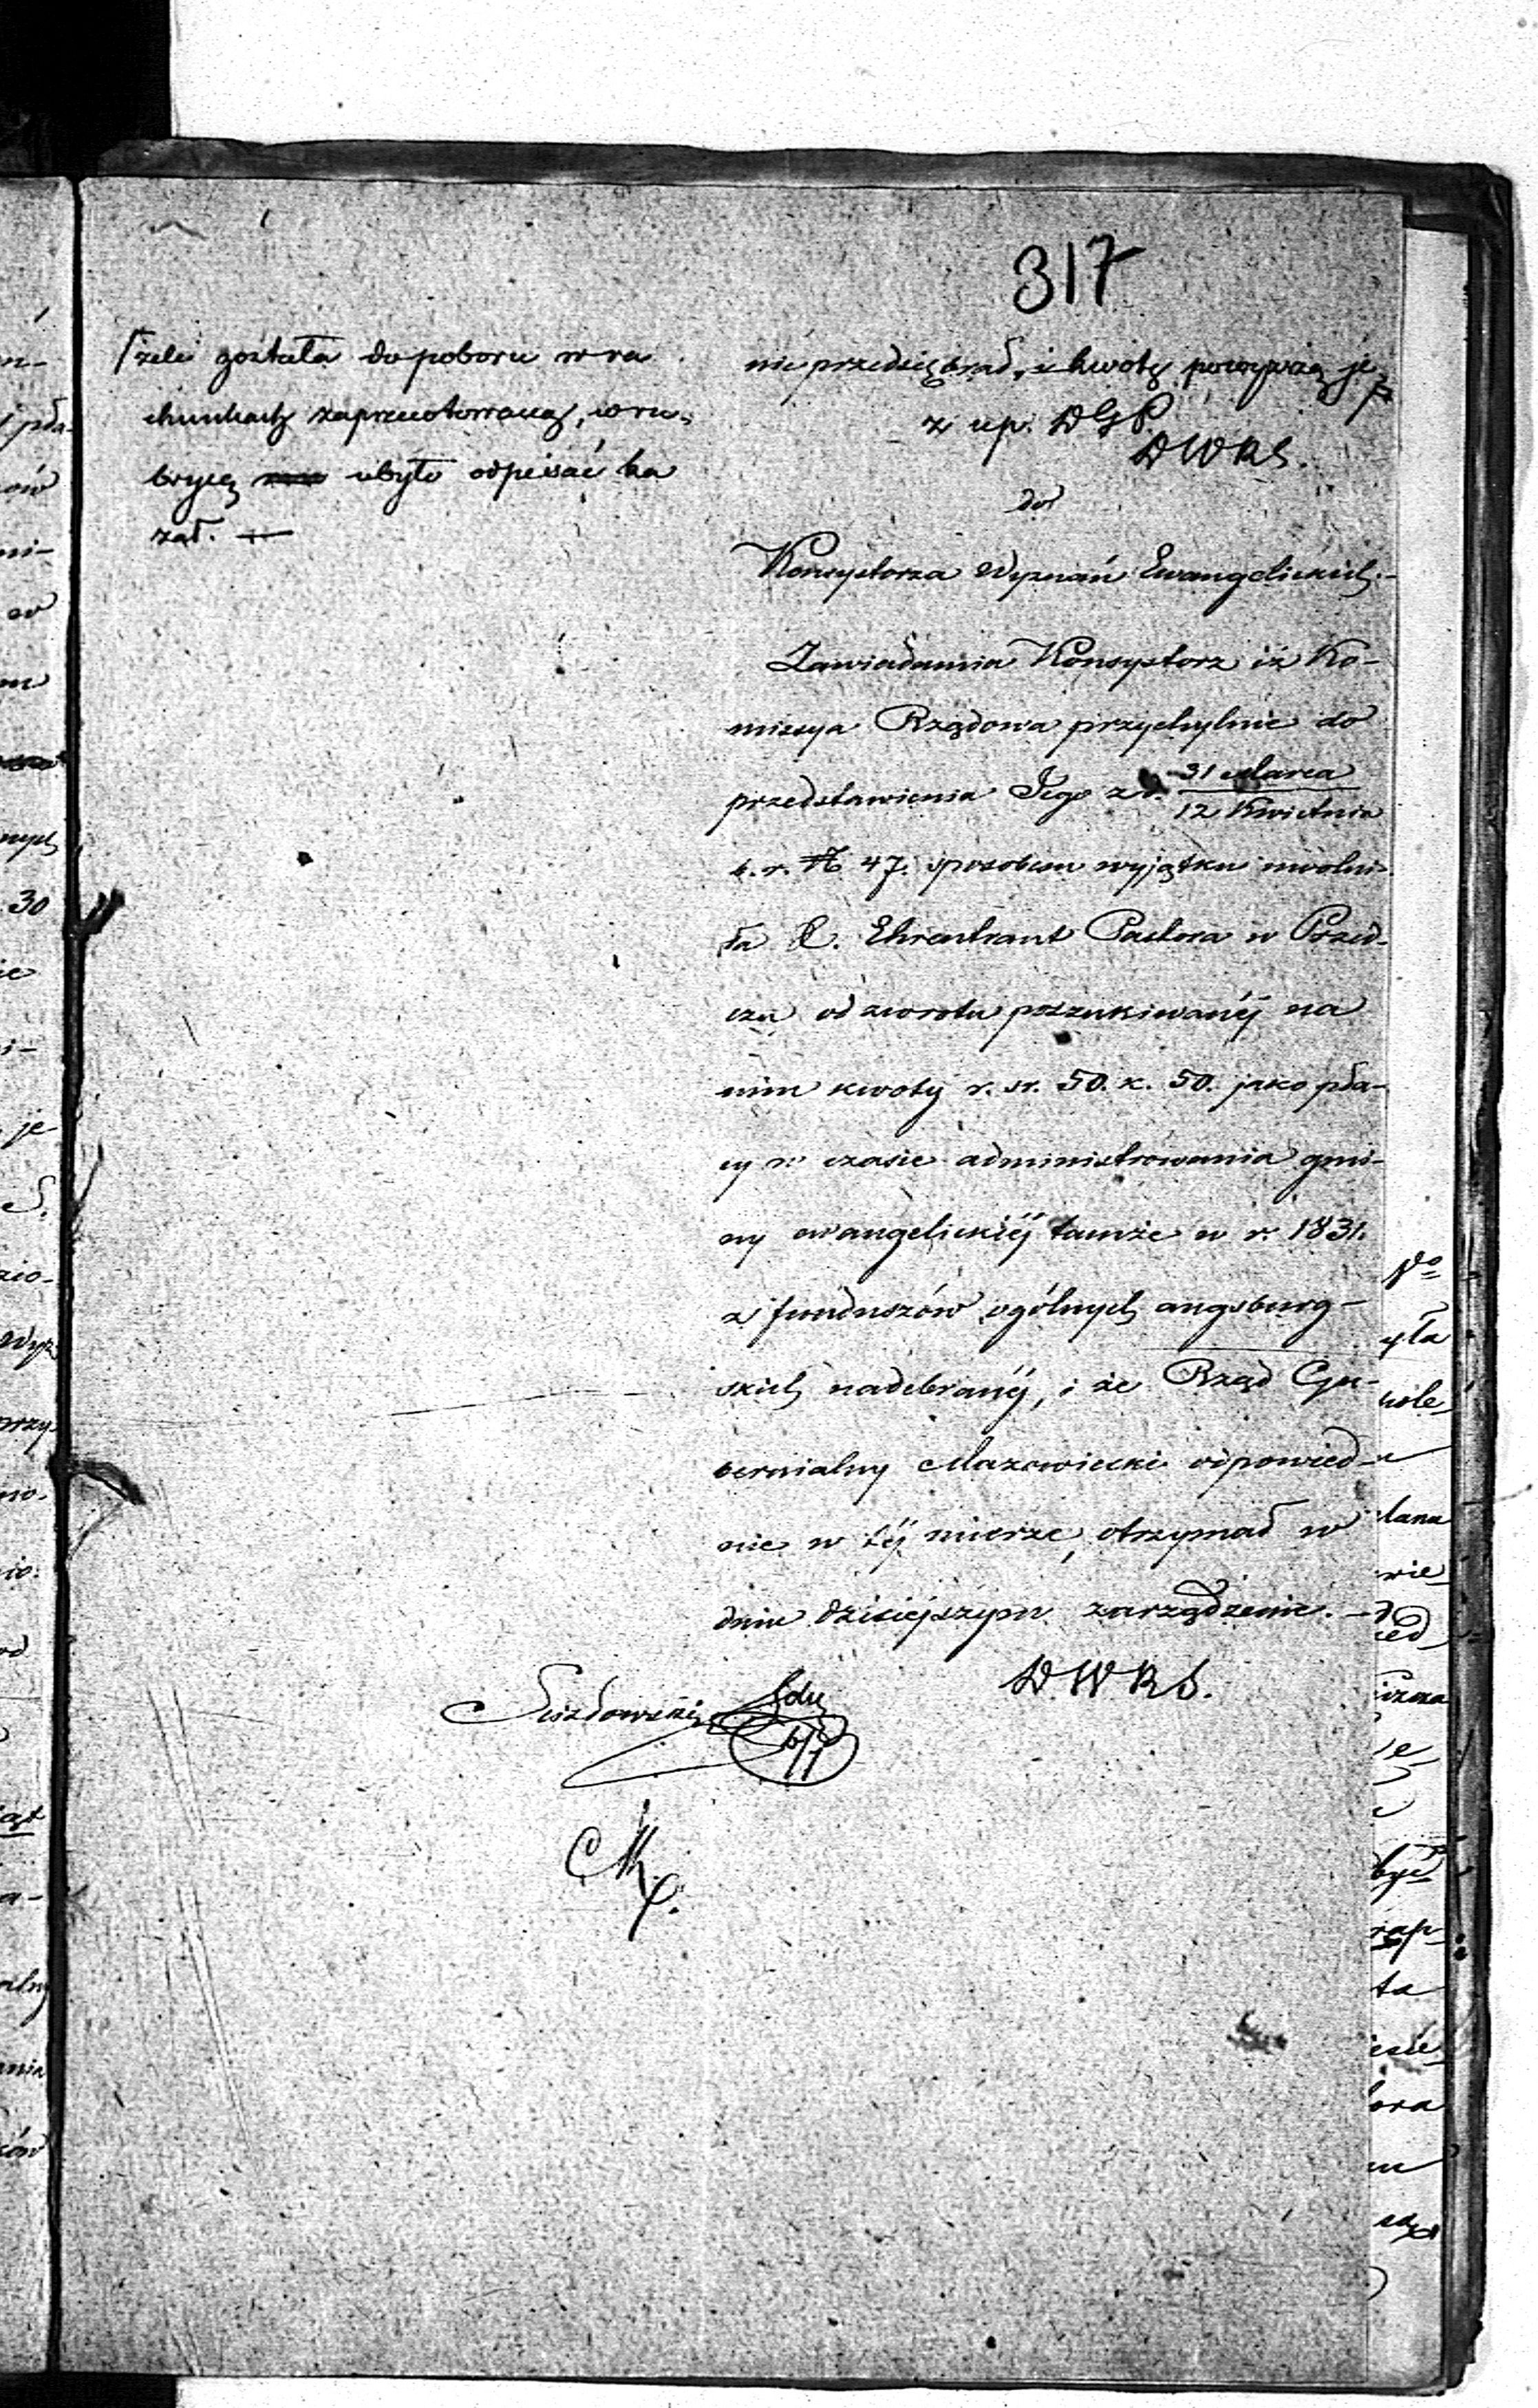 317
żeli została do poboru w ra
chunkach zaprenotowaną, w ru„
brycę ubyło odpisać ka
zał. —
nie przedsiębrał, i kwotę powyższą je
z up. DGP.
DWRS.
do
Konsystorza Wyznań Ewangelickich.—
Zawiadamia Konsystorz iż Ko-
missya Rządowa przychylnie do
przedstawienia Jego z d. 31 Marca
12 Kwietnia
b. r. № 47. sposobem wyjątku uwolni-
ła X. Ehrentraut Pastora w Przed-
czu od zwrotu poszukiwanéj na
nim kwoty r. sr. 50. k. 50. jako pła-
cy w czasie administrowania gmi-
ny ewangelickiéj tamże w r. 1831.
z funduszów ogólnych augsburg-
skich nadebranéj, i że Rząd Gu-
bernialny Mazowiecki odpowied-
nie w téj mierze, otrzymał w
dniu dzisiejszym zarządzenie. —
D.W.R.S.